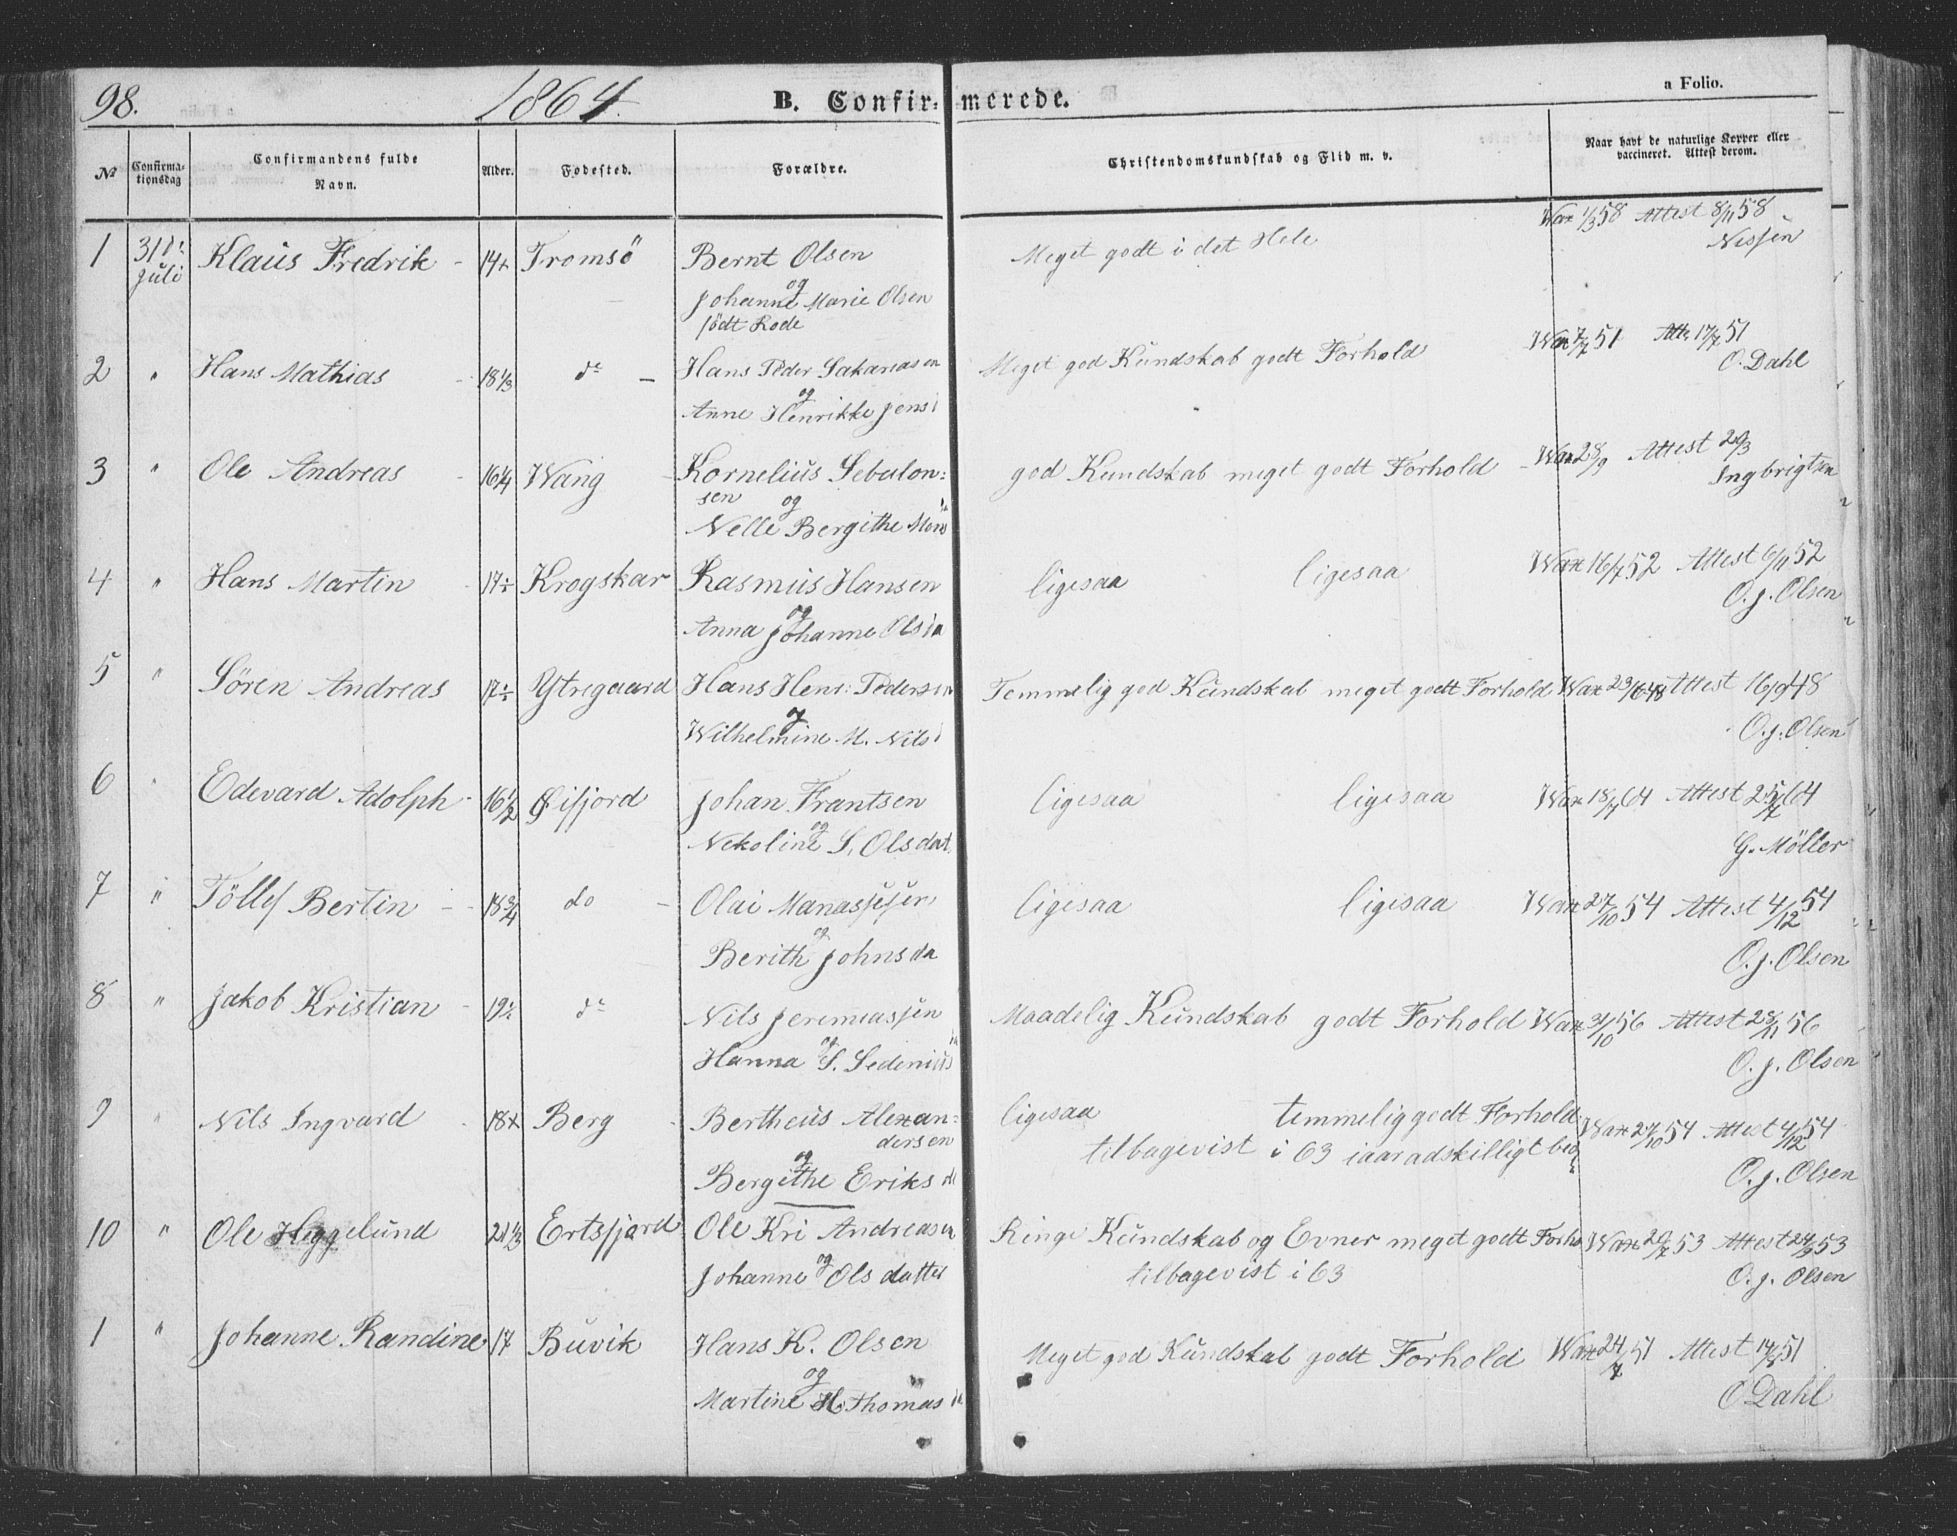 98. 1864. B. Confirmerede. a Folio.
№ Confirmationsdag Confirmandens fulde Navn. Alder. Fodested. Forældre. Christendomskundskab og Flid m. v. Naar havt de naturlige Kopper eller vaccineret. Attest derom.
1 31te Juli Klaus Fredrik 14+ Tromsö Bernt Olsen Meget godt i det Hele Wax 1/3 58 Attest 8/11 58
og Nissen
Johanne Marie Olsen
født Rode
2 " Hans Mathias 18 1/3 do Hans Peder Sakariasen Meget god Kundskab godt Forhold Wax 7/7 51 Att. 17/7 51
og O. Dahl
Anne Henrikke Jens
3 " Ole Andreas 16 1/4 Wang Kornelius Sebulon= god Kundskab meget godt Forhold Wax 28/9 Attest 20/3
sen og Ingbrigtsen
Nelle Bergithe
4 " Hans Martin 17÷ Krogskar Rasmus Hansen ligesaa ligesaa Wax 16/7 52 Attest 6/11 52
og O. J. Olsen
Anna Johanne Ols da
5 " Sören Andreas 17÷ Ytregaard Hans Henr: Pedersen Temmelig god Kundskab meget godt Forhold Wax 23/6 48 Attest 16/9 48
og O. J. Olsen
Wilhelmine M. Nils
6 " Edevard Adolph 16 1/2 Øifjord Johan Frantsen ligesaa ligesaa Wax 18/7 64 Attest 25/7 64
og G. Möller
Nekoline S. Olsdat
7 " Töllef Bertin 18 3/4 do Olai Manassesen ligesaa ligesaa Wax 27/10 54 Attest 4/12 54
og O. J. Olsen
Berith Johnsda
8 " Jakob Kristian 19÷ do Nils Jeremiassen Maadelig Kundskab godt Forhold Wax 31/10 56 Attest 28/11 56
og O. J. Olsen
Hanna S. Sedenius
9 " Nils Ingvard 18+ Berg Bertheus Alexan= ligesaa temmelig godt Forhold Wax 27/10 54 Attest 4/12 54
dersen tilbagevist i 63 iaar adskilligt O. J. Olsen
og
Bergithe Eriks
10 " Ole Heggelund 21 1/3 Ertsfjord Ole Kri Andreasen Ringe Kundskab og Evner meget godt Forho Wax 20/7 53 Attest 24/9 53
og tilbagevist i 63 O. J. Olsen
Johanne Olsdatter
1 " Johanne Randine 17 Buvik Hans K. Olsen Meget god Kundskab godt Forhold Wax 24/7 51 Attest 51
og O Dahl
Martine H. Thomas